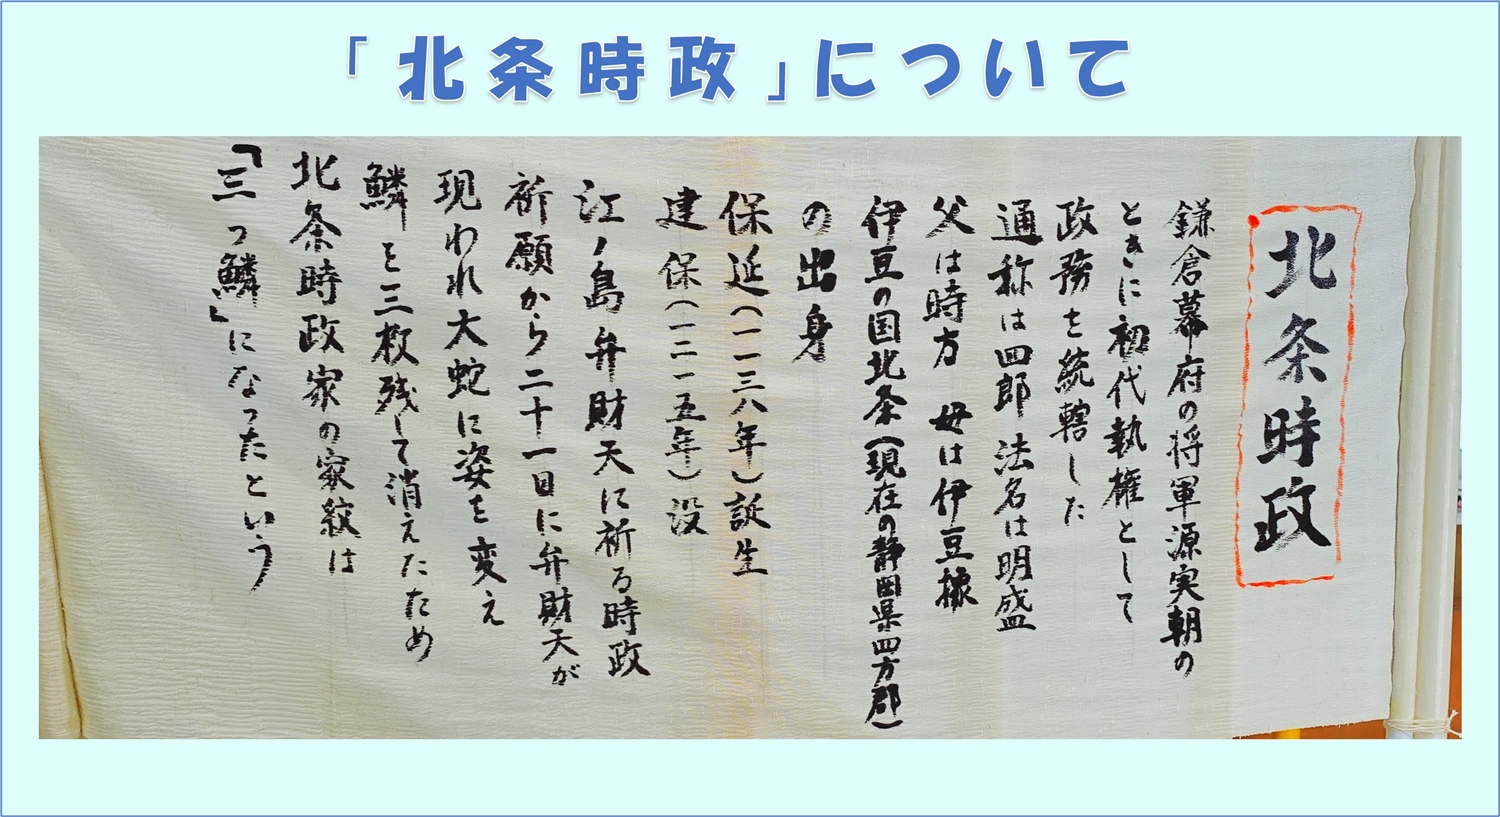 「北条時政」について
北条時政
鎌倉幕府の将軍源実朝の
ときに初代執権として
政務を統轄した
通称は四郎 法名は明盛
父は時方 母は伊豆掾
伊豆の国北条(現在の静岡県四方郡)
の出身
保延(一一三八年)誕生
建保(一二一五年)没
江ノ島弁財天に祈る時政
祈願から二十一日に弁財天が
現われ大蛇に姿を変え
鱗を三枚残して消えたため
北条時政家の家紋は
「三つ鱗」になったという